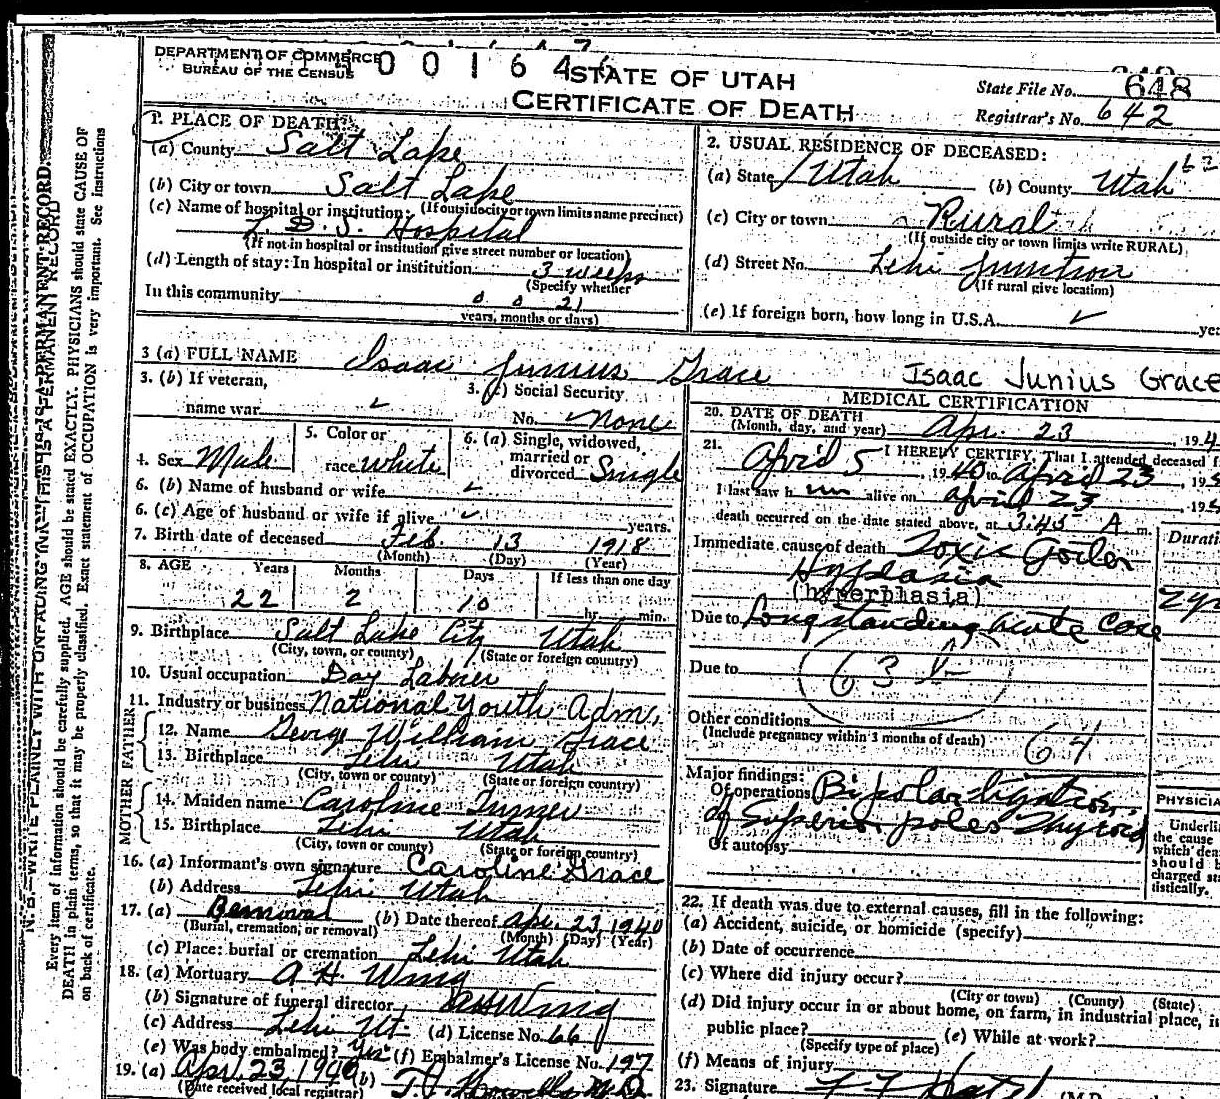 DEPARTMENT OF COMMERCE
BUREAU OF THE CENSUS
0 0 1 6 4
STATE OF UTAH
CERTIFICATE OF DEATH
State File No. 648
Registrar's No. 642
1. PLACE OF DEATH:
(a) County Salt Lake
(b) City or town Salt Lake
(If outside city or town limits name precinct)
(c) Name of hospital or institution:
L. D. S. Hospital
(If not in hospital or institution give street number or location)
(d) Length of stay: In hospital or institution 3 weeks
(Specify whether
In this community 0 0 21
years, months or days)
2. USUAL RESIDENCE OF DECEASED:
(a) State Utah (b) County Utah
(c) City or town Rural
(If outside city or town limits write RURAL)
(d) Street No. Lehi Junction
(If rural give location)
(e) If foreign born, how long in U.S.A. ✓
3 (a) FULL NAME Isaac Junius Grace Isaac Junius Grace
3. (b) If veteran,
name war ✓
3. (c) Social Security
No. None
4. Sex Male
5. Color or
race white
6. (a) Single, widowed,
married or
divorced Single
6. (b) Name of husband or wife ✓
6. (c) Age of husband or wife if alive ✓ years.
7. Birth date of deceased Feb. 13 1918
(Month) (Day) (Year)
8. AGE Years Months Days If less than one day
22 2 10 hr. min.
9. Birthplace Salt Lake City Utah
(City, town, or county) (State or foreign country)
10. Usual occupation Day Laborer
11. Industry or business National Youth Adm.
FATHER
12. Name George William Grace
13. Birthplace Lehi Utah
(City, town or county) (State or foreign country)
MOTHER
14. Maiden name Caroline Turner
15. Birthplace Lehi Utah
(City, town or county) (State or foreign country)
16. (a) Informant's own signature Caroline Grace
(b) Address Lehi Utah
17. (a) Removal (b) Date thereof Apr. 23, 1940
(Burial, cremation, or removal) (Month) (Day) (Year)
(c) Place: burial or cremation Lehi Utah
18. (a) Mortuary A. H. Wing
(b) Signature of funeral director A H Wing
(c) Address Lehi Ut. (d) License No. 66
(e) Was body embalmed? Yes (f) Embalmer's License No. 197
19. (a) Apr. 23, 1940 (b) M.D.
(Date received local registrar)
MEDICAL CERTIFICATION
20. DATE OF DEATH
(Month, day, and year) Apr. 23, 194
21. I HEREBY CERTIFY, That I attended deceased f
April 5, 1940 to April 23, 19
I last saw him alive on April 23 19
death occurred on the date stated above, at 3:45 A m.
Durati
Immediate cause of death Toxic Goiter
Hyplasia
(hyperphasia)
Due to Long standing acute case
2 yr
Due to
63 b
Other conditions
(Include pregnancy within 3 months of death)
64
Major findings:
Of operations Bipolar ligation
of Superior poles Thyroid
Of autopsy
PHYSICIA
Underli
the cause
which dea
should b
charged sta
tistically.
22. If death was due to external causes, fill in the following:
(a) Accident, suicide, or homicide (specify)
(b) Date of occurrence
(c) Where did injury occur?
(City or town) (County) (State)
(d) Did injury occur in or about home, on farm, in industrial place, i
public place? (e) While at work?
(Specify type of place)
(f) Means of injury
23. Signature
N. B.—WRITE PLAINLY WITH UNFADING INK—THIS IS A PERMANENT RECORD.
Every item of information should be carefully supplied. AGE should be stated EXACTLY. PHYSICIANS should state CAUSE OF
DEATH in plain terms, so that it may be properly classified. Exact statement of OCCUPATION is very important. See instructions
on back of certificate.